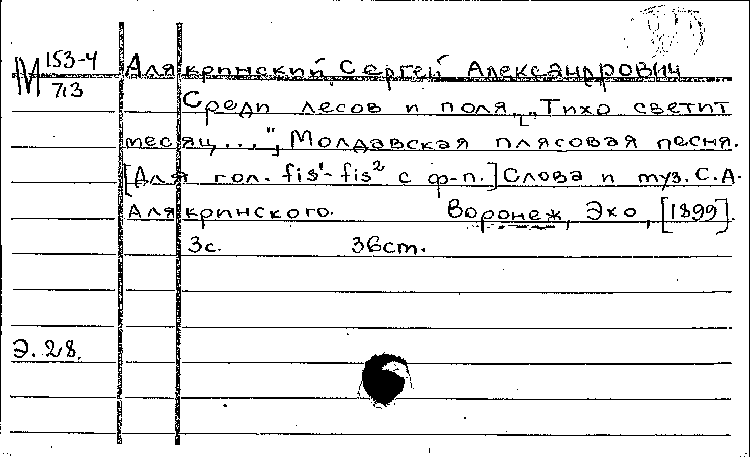 М 153-4
713
Алякринский Сергей Александрович
Среди лесов и поля. [„Тихо светит
месяц...“], Молдавская плясовая песня.
[Для гол. fis¹-fis² с ф-п.] Слова и муз. С.А.
Алякринского. Воронеж, Эхо, [1899].
3с. 36cm.
Э. 28.